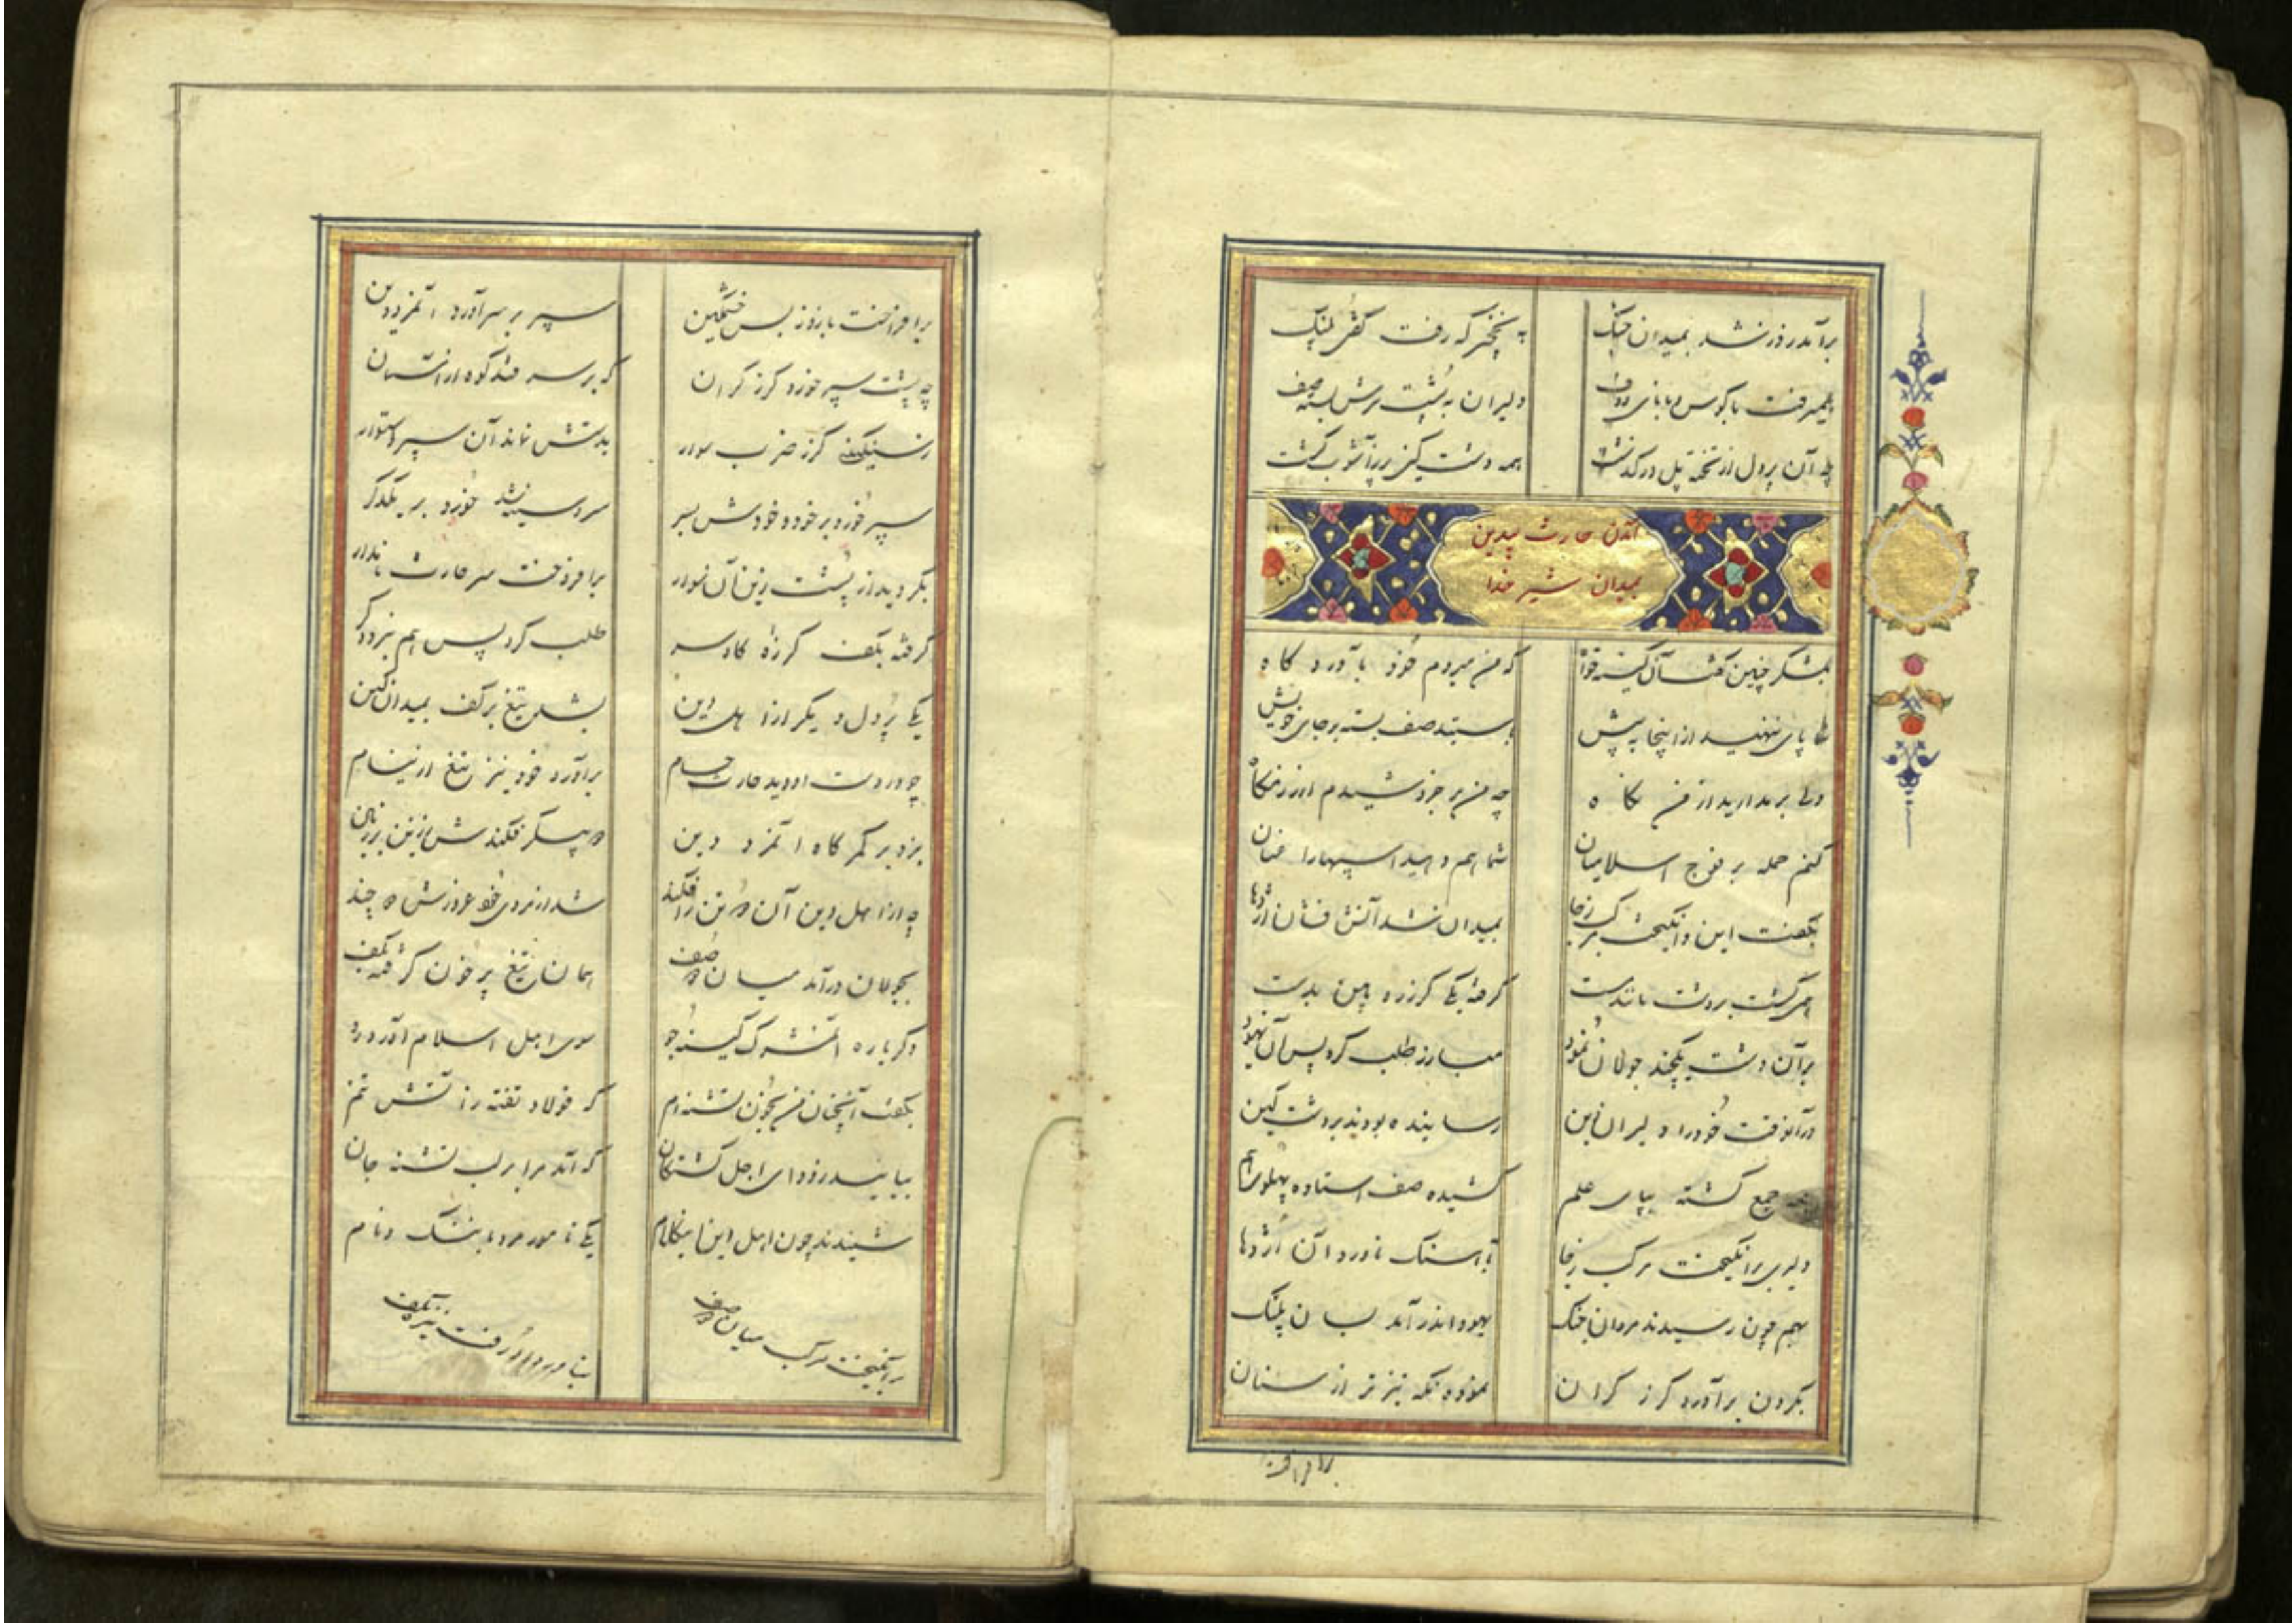 برآمد روز شد بمیدان جنگ
به نخچیر که رفت گفتی پلنگ
همیرفت با کوس و با نای و دف
دلیران به پشت سرش بسته صف
چه آن پر دل از تخته پل درگذشت
همه دشت کین پر ز آشوب گشت
آمدن حارث بیدین
بمیدان شیر خدا
بلشکر چنین گفت آن کینه خواه
که من میروم خود بآوردگاه
پای ننهید از اینجا به پیش
بایستید صف بسته بر جای خویش
ولی برمدارید از من نگاه
چه من بر خروشیدم از رزمگاه
کنم حمله بر فوج اسلامیان
شما هم دهید اسپها را عنان
بگفت این و انگیخت مرکب ز جا
بمیدان شد آتش فشان اژدها
همی گشت بر دشت مانند مست
گرفته یکی گرزه آهن بدست
بر آن دشت یکچند جولان نمود
مبارز طلب کرد پس آن یهود
در آنوقت خود را دلیران دین
رسانیده بودند بر دشت کین
جمع گشته بپای علم
کشیده صف استاده پهلوی هم
دلیری برانگیخت مرکب ز جا
بآهنگ ناورد آن اژدها
بهم چون رسیدند مردان جنگ
یهود اندر آمد بسان پلنگ
بگردن برآورد گرز گران
نموده نگه تیزتر از سنان
برافراخت
برافراخت بازو ز بس خشمگین
سپر بر سر آورد آنمرد دین
چه پشت سپر خورد گرز گران
که بر سر فتد کوه از آسمان
ز سنگینی گرز و ضرب سوار
بدستش نماند آن سپر استوار
سپر خورد بر خود و خودش بسر
سر و سینه شد خورد بر یکدگر
بگردید از پشت زین آن سوار
برافروخت سر حارث نابدار
گرفته بکف گرزه گاوسر
طلب کرد پس هم نبرد دگر
یکی پر دل دیگر از اهل دین
بشد تیغ بر کف بمیدان کین
چو در دست او دید حارث حسام
برآورد خود نیز تیغ از نیام
بزد بر کمرگاه آنمرد دین
چه از اهل دین آن دو تن را فکند
شد از مردی خود غرورش دو چند
بجولان درآمد میان دو صف
همان تیغ پر خون گرفته بکف
دگر باره آن مشرک کینه جو
سوی اهل اسلام آورد رو
بگفت آنچنان من بخون تشنه ام
که فولاد تفته ز آتش نم
بیایید زود ای اجل گشتگان
که آمد مرا بر لب تشنه جان
شنیدند چون اهل این کلام
یکی نامور مرد با ننگ و نام
برانگیخت مرکب میان دو صف
بناورد او رفت نیزه بکف